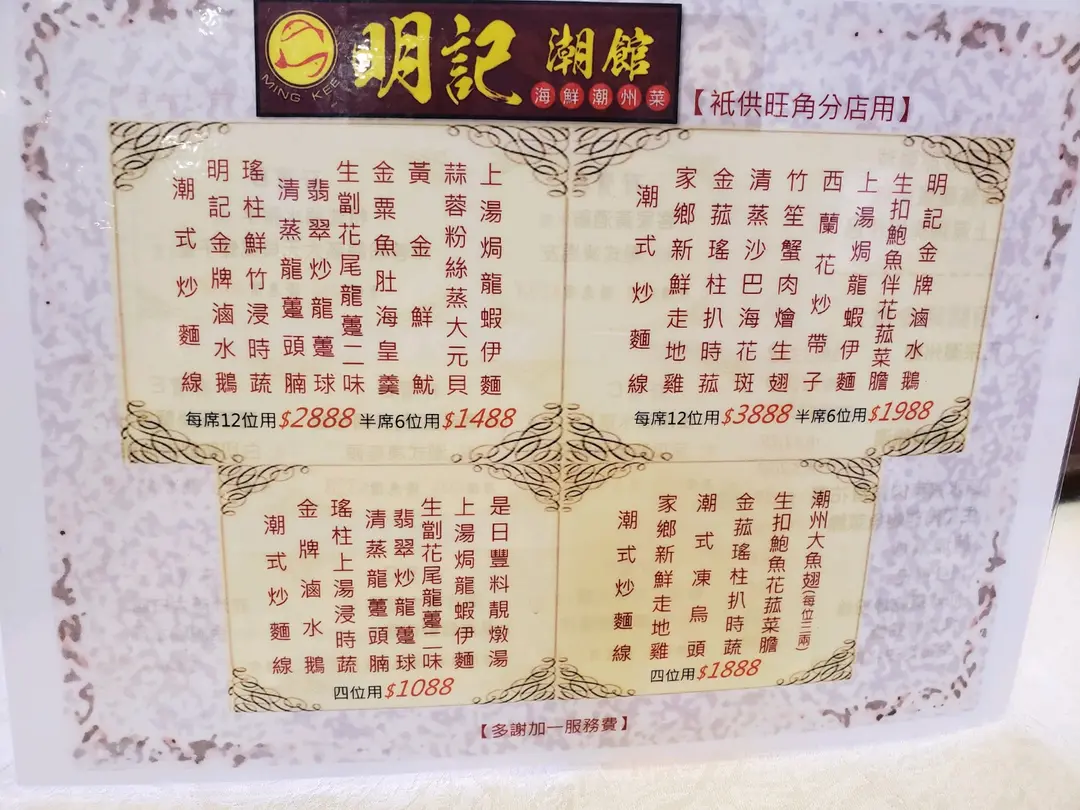 明記 潮館
MING KEE
海鮮潮州菜
【祇供旺角分店用】
上湯焗龍蝦伊麵
蒜蓉粉絲蒸大元貝
黃金鮮魷
金粟魚肚海皇羹
生劏花尾龍躉二味
翡翠炒龍躉球
清蒸龍躉頭腩
瑤柱鮮竹浸時蔬
明記金牌滷水鵝
潮式炒麵線
每席12位用$2888 半席6位用$1488
明記金牌滷水鵝
生扣鮑魚伴花菰菜膽
上湯焗龍蝦伊麵
西蘭花炒帶子
竹笙蟹肉燴生翅
清蒸沙巴海花斑
金菰瑤柱扒時菰
家鄉新鮮走地雞
潮式炒麵線
每席12位用$3888 半席6位用$1988
是日豐料靚燉湯
上湯焗龍蝦伊麵
生劏花尾龍躉二味
翡翠炒龍躉球
清蒸龍躉頭腩
瑤柱上湯浸時蔬
金牌滷水鵝
潮式炒麵線
四位用$1088
潮州大魚翅(每位三兩)
生扣鮑魚花菰菜膽
金菰瑤柱扒時蔬
潮式凍烏頭
家鄉新鮮走地雞
潮式炒麵線
四位用$1888
【多謝加一服務費】